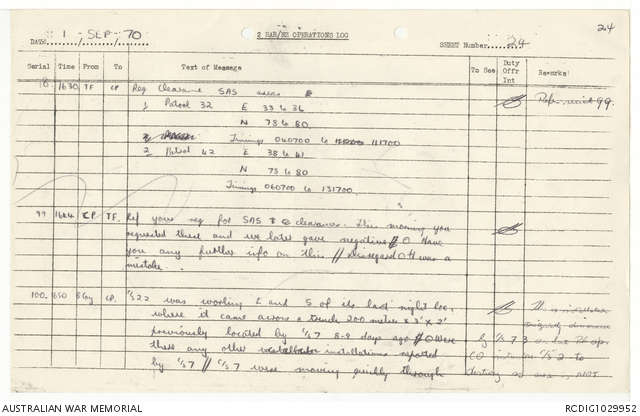 24
2 RAR/NZ OPERATIONS LOG
DATE 1 - SEP - 70
SHEET Number 24
Serial Time From To Text of Message To See Duty Offr Int Remarks
98 1630 TF CP Req Clearance SAS areas
Refer serial 99.
1 Patrol 32 E 33 to 36
N 73 to 80
Timings 040700 to 111700
2 Patrol 42 E 38 to 41
N 73 to 80
Timings 060700 to 131700.
99 1644 CP TF. Ref your req for SAS clearance. This morning you
requested these and we later gave negative // O Have
you any further info on this // Disregard O H was a
mistake.
100. 1650 CP. C/S 22 was working E and S of its last night loc,
where it came across a trench 200 metres x 3' x 2'
previously located by C/S 7 8-9 days ago // O Were
there any other installations reported
by C/S 7 // C/S 7 were moving quickly through
by C/S 7 3
C/S 2 to
destroy as area is NOT
AUSTRALIAN WAR MEMORIAL
RCDIG1029952